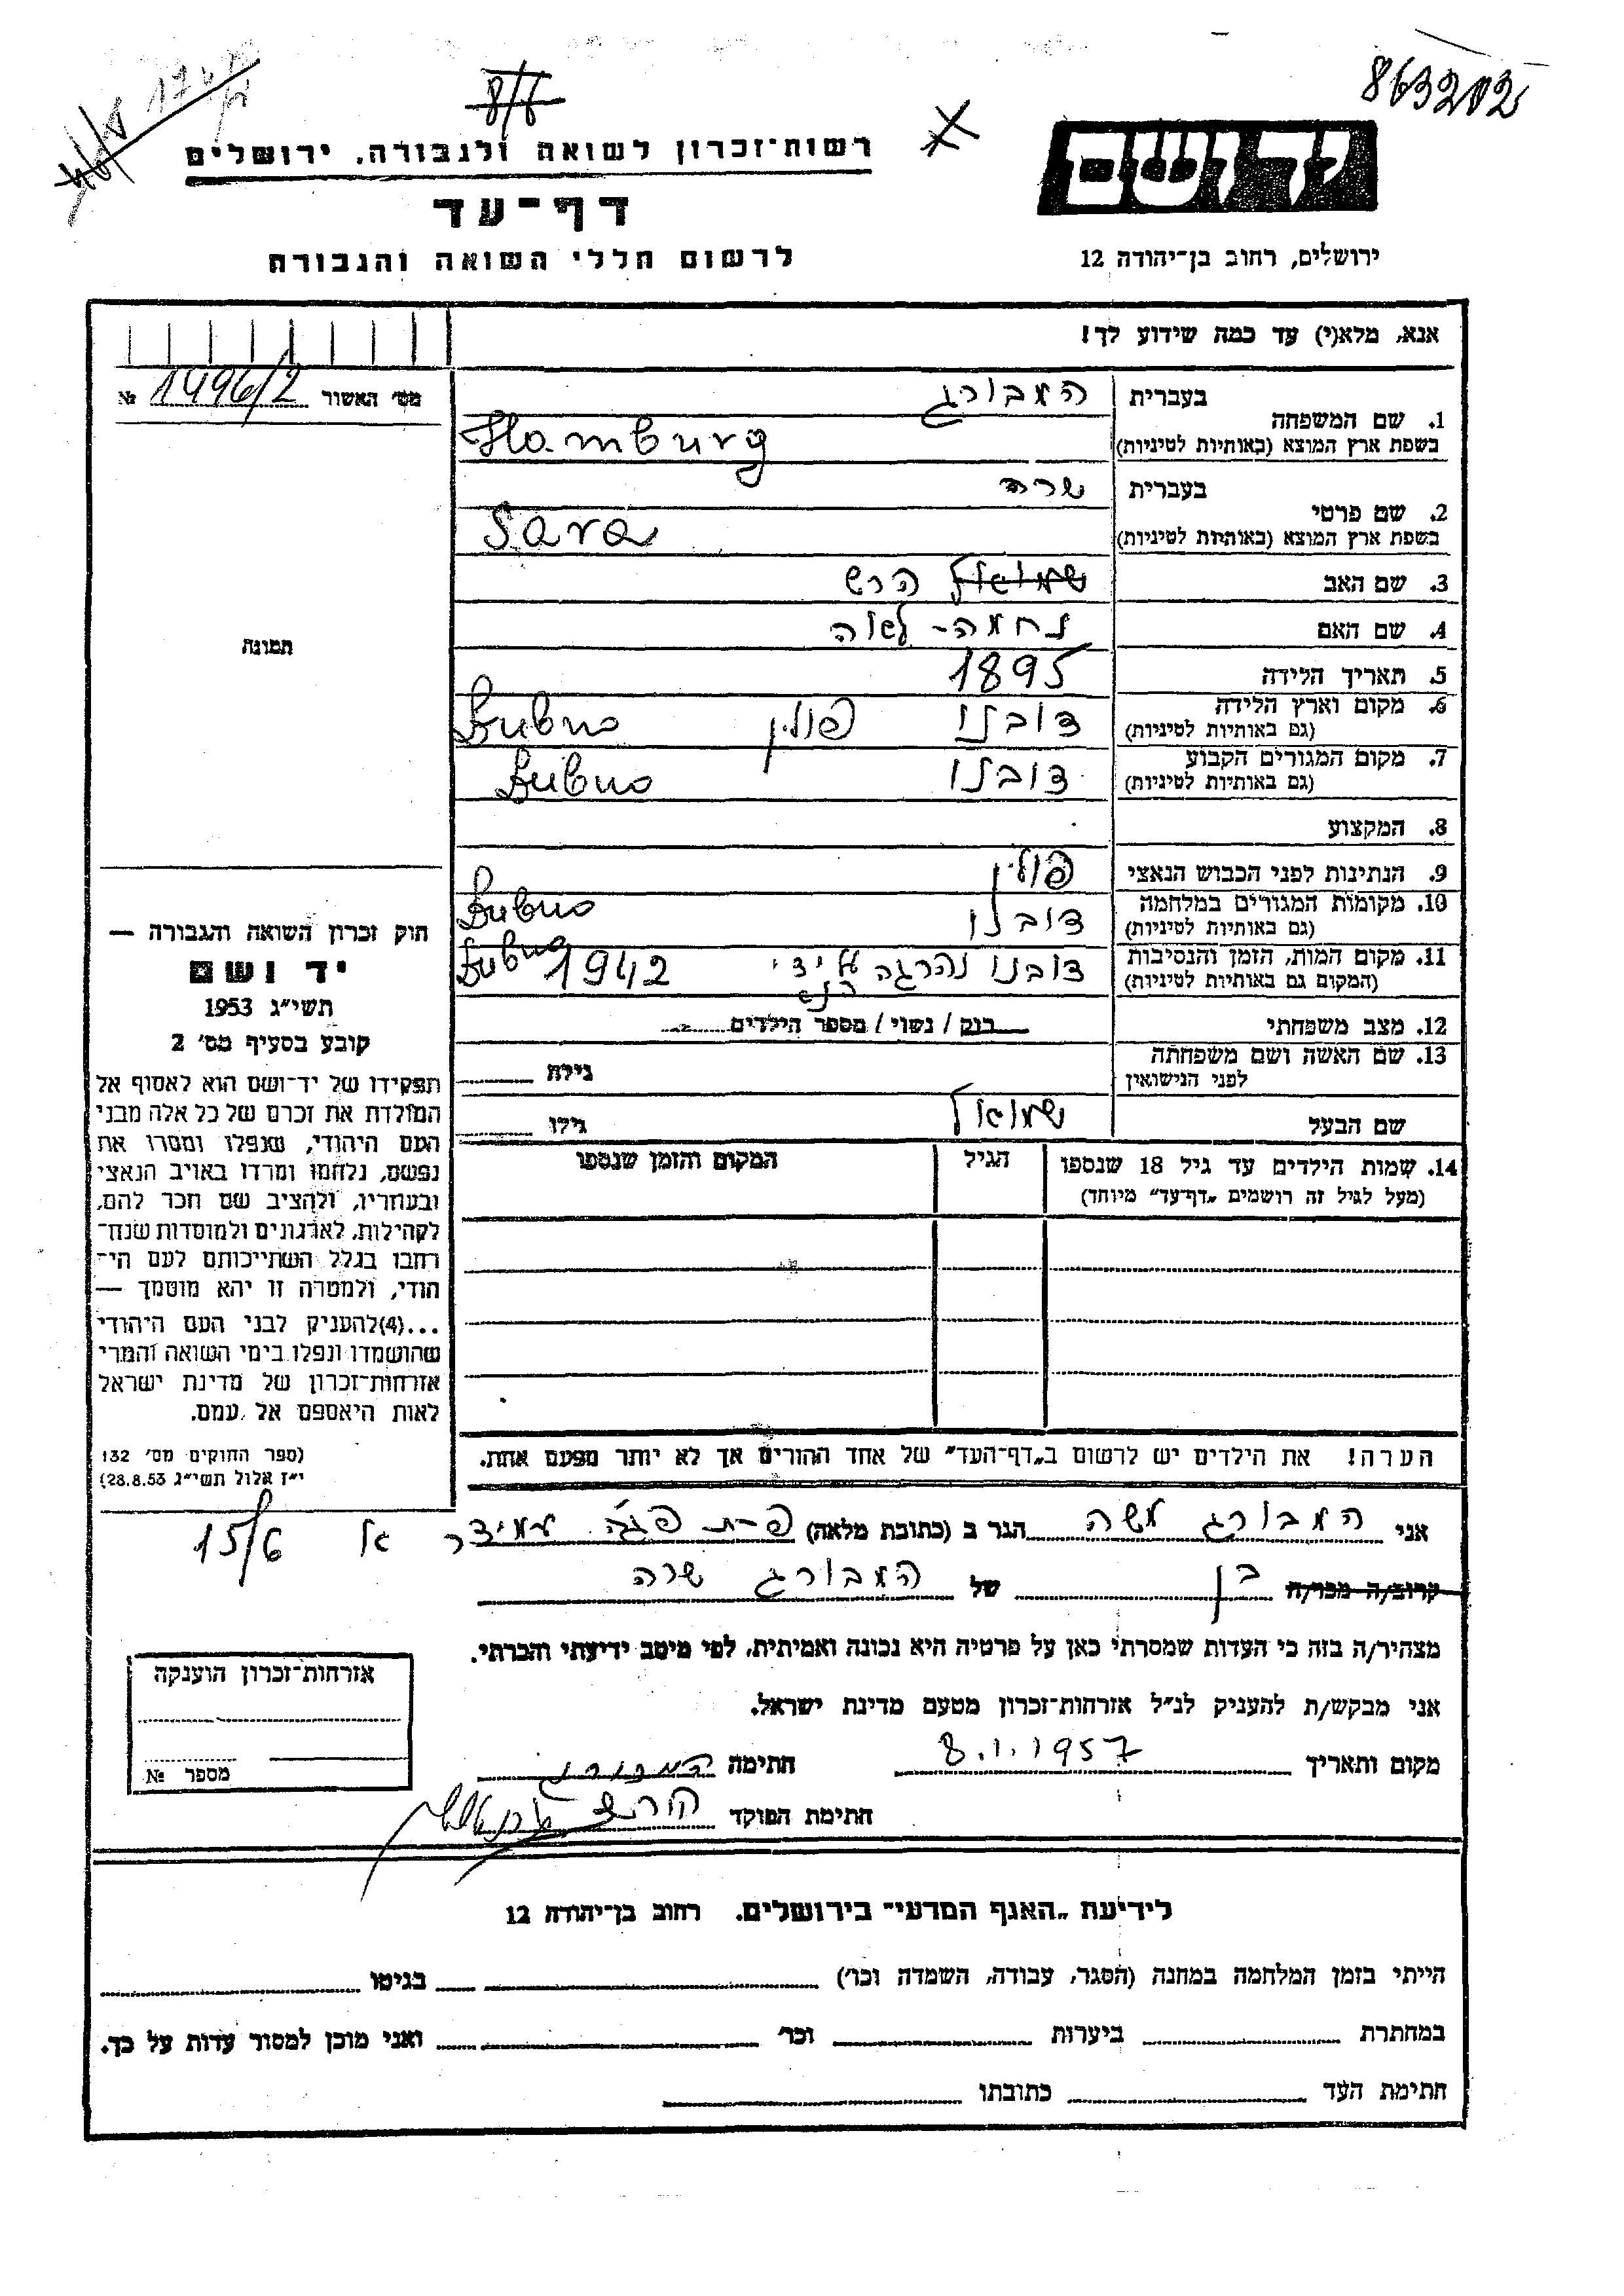 863202
8/6
רשות־זכרון לשואה ולגבורה, ירושלים
יד ושם
דף־עד
לרשום חללי השואה והגבורה
ירושלים, רחוב בן־יהודה 12
אנא, מלא(י) עד כמה שידוע לך!
מס׳ האשור 1496/2 №
1. שם המשפחה
בעברית המבורג
בשפת ארץ המוצא (באותיות לטיניות) Hamburg
2. שם פרטי
בעברית שרה
בשפת ארץ המוצא (באותיות לטיניות) Sara
3. שם האב שמואל הרש
4. שם האם נחמה - לאה
5. תאריך הלידה 1895
6. מקום וארץ הלידה דובנו פולין Dubno
(גם באותיות לטיניות)
7. מקום המגורים הקבוע דובנו Dubno
(גם באותיות לטיניות)
8. המקצוע
9. הנתינות לפני הכבוש הנאצי פולין
10. מקומות המגורים במלחמה דובנו Dubno
(גם באותיות לטיניות)
11. מקום המות, הזמן והנסיבות דובנו נהרגה על ידי 1942 Dubno
(המקום גם באותיות לטיניות)
12. מצב משפחתי רנק / נשוי / מספר הילדים
13. שם האשה ושם משפחתה גילה
לפני הנישואין
שם הבעל שמואל גילו
14. שמות הילדים עד גיל 18 שנספו הגיל המקום והזמן שנספו
(מעל לגיל זה רושמים „דף־עד” מיוחד)
הערה! את הילדים יש לרשום ב„דף־העד” של אחד ההורים אך לא יותר מפעם אחת.
תמונה
חוק זכרון השואה והגבורה —
יד ושם
תשי״ג 1953
קובע בסעיף מס׳ 2
תפקידו של יד־ושם הוא לאסוף אל
המולדת את זכרם של כל אלה מבני
העם היהודי, שנפלו ומסרו את
נפשם, נלחמו ומרדו באויב הנאצי
ובעוזריו, ולהציב שם וזכר להם,
לקהילות, לארגונים ולמוסדות שנח־
רבו בגלל השתייכותם לעם הי־
הודי, ולמטרה זו יהא מוסמך —
...(4)להעניק לבני העם היהודי
שהושמדו ונפלו בימי השואה והמרי
אזרחות־זכרון של מדינת ישראל
לאות היאספם אל עמם.
(ספר החוקים מס׳ 132
י״ז אלול תשי״ג 28.8.53)
אני המבורג משה הגר ב (כתובת מלאה) פ-ת פגה עמידר גוש 15/6
קרוב/ה מכר/ה בן של המבורג שרה
מצהיר/ה בזה כי העדות שמסרתי כאן על פרטיה היא נכונה ואמיתית, לפי מיטב ידיעתי והכרתי.
אני מבקש/ת להעניק לנ״ל אזרחות־זכרון מטעם מדינת ישראל.
מקום ותאריך 8.1.1957 חתימה המבורג
חתימת הפוקד
אזרחות־זכרון הוענקה
מספר №
לידיעת „האגף המדעי” בירושלים. רחוב בן־יהודה 12
הייתי בזמן המלחמה במחנה (הסגר, עבודה, השמדה וכו׳) בגיטו
במחתרת ביערות וכו׳ ואני מוכן למסור עדות על כך.
חתימת העד כתובתו